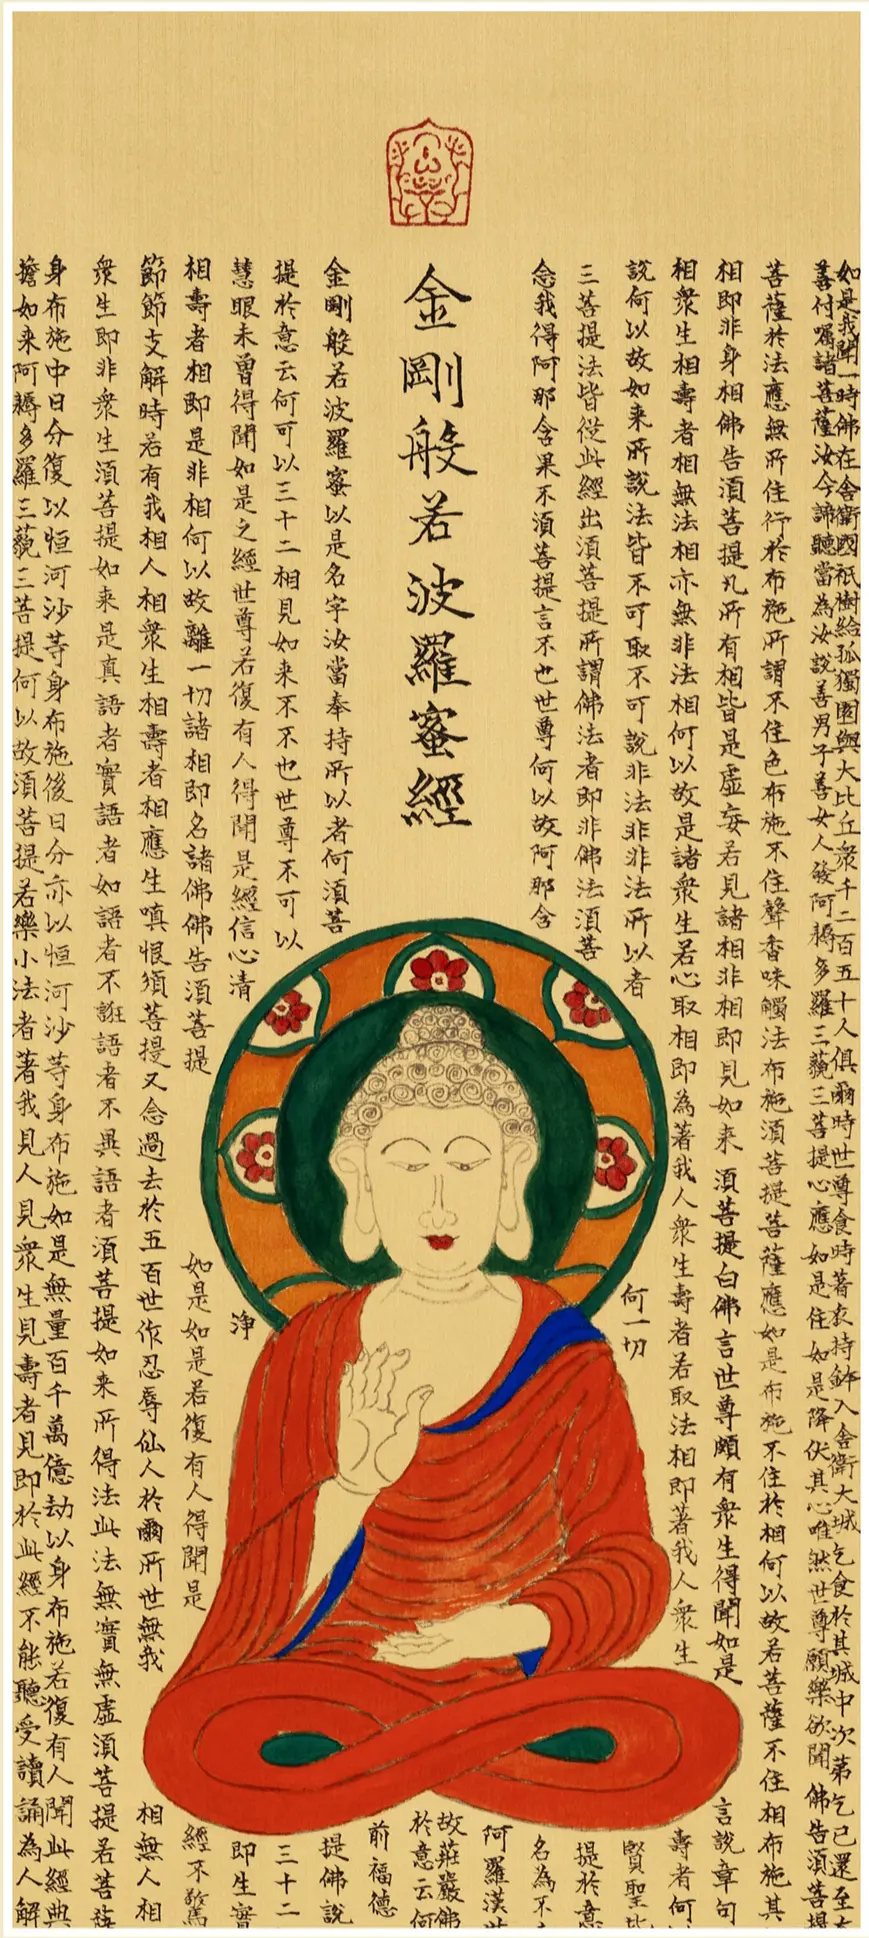 如是我聞一時佛在舍衛國祇樹給孤獨園與大比丘衆千二百五十人俱爾時世尊食時著衣持鉢入舍衛大城乞食於其城中次第乞已還至
善付囑諸菩薩汝今諦聽當為汝說善男子善女人發阿耨多羅三藐三菩提心應如是住如是降伏其心唯然世尊願樂欲聞 佛告須菩提
菩薩於法應無所住行於布施所謂不住色布施不住聲香味觸法布施須菩提菩薩應如是布施不住於相何以故若菩薩不住相布施其
相即非身相佛告須菩提凡所有相皆是虛妄若見諸相非相即見如来 須菩提白佛言世尊頗有衆生得聞如是
言說章句
相衆生相壽者相無法相亦無非法相何以故是諸衆生若心取相即為著我人衆生壽者若取法相即著我人衆生
壽者何
說何以故如来所說法皆不可取不可說非法非非法所以者
何一切
賢聖
三菩提法皆從此經出須菩提所謂佛法者即非佛法須菩
提於意
念我得阿那含果不須菩提言不也世尊何以故阿那含
名為不
阿羅漢
金剛般若波羅蜜經
故莊嚴佛
於意云何
前福德
金剛般若波羅蜜以是名字汝當奉持所以者何須菩
提佛說
提於意云何可以三十二相見如来不不也世尊不可以
三十二
慧眼未曾得聞如是之經世尊若復有人得聞是經信心清
淨
即生實
相壽者相即是非相何以故離一切諸相即名諸佛佛告須菩提
如是如是若復有人得聞是
經不驚
節節支解時若有我相人相衆生相壽者相應生嗔恨須菩提又念過去於五百世作忍辱仙人於爾所世無我
相無人相
衆生即非衆生須菩提如来是真語者實語者如語者不誑語者不異語者須菩提如来所得法此法無實無虛須菩提若菩薩
身布施中日分復以恒河沙等身布施後日分亦以恒河沙等身布施如是無量百千萬億劫以身布施若復有人聞此經典
擔如来阿耨多羅三藐三菩提何以故須菩提若樂小法者著我見人見衆生見壽者見即於此經不能聽受讀誦為人解